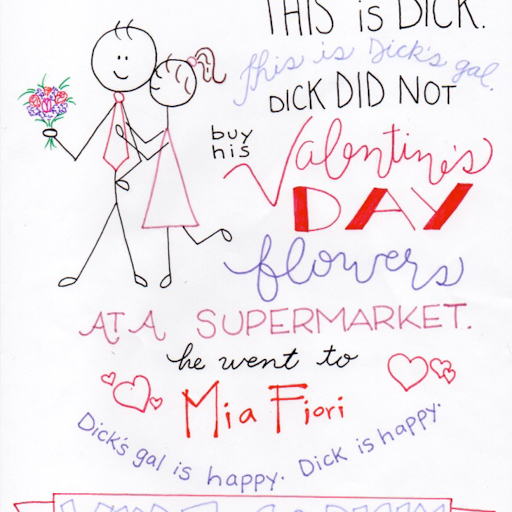 THIS is DICK.
this is Dick's gal.
DICK DID NOT
buy
his
Valentine's
DAY
flowers
AT A SUPERMARKET.
he went to
Mia Fiori
Dick's gal is happy. Dick is happy.